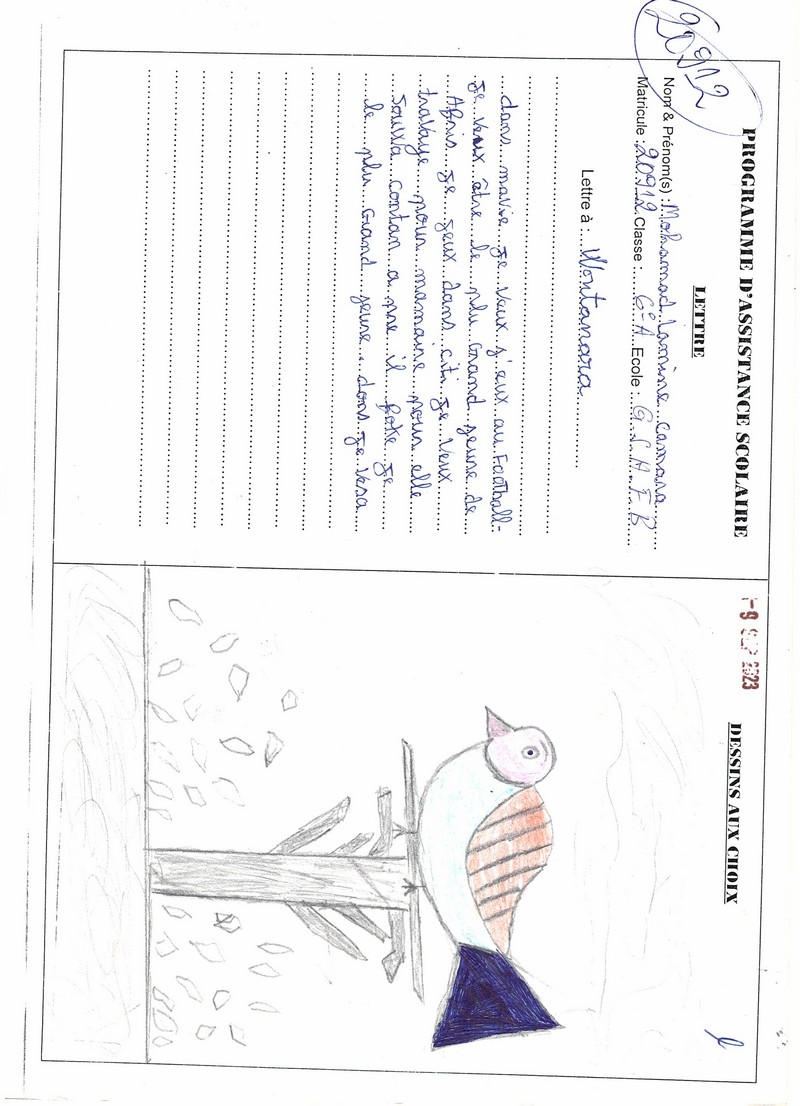 20912
PROGRAMME D'ASSISTANCE SCOLAIRE
LETTRE
Nom & Prénom(s) : Mohamed Lamine camara
Matricule : 20912 Classe : 6e A Ecole : G S H F B
Lettre à : Wontanara
dans mavie je veux j'eux au Football-
je veux être le plu Grand jeune de
Afris je jeux dans citi je veux
travaye pour mamaine pour elle
Souwa contan a pre il foke je
le plu Grand jeune dans je vesa
-8 SEP 2023
DESSINS AUX CHOIX